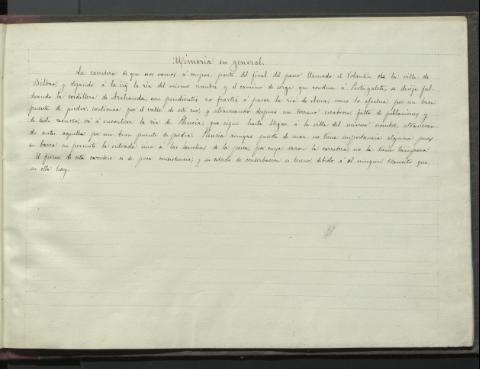 Memoria en general.
La carretera de que nos vamos á ocupar, parte del final del paseo llamado el Volantin de la villa de
Bilbao y dejando á la izq. la ria del mismo nombre y el camino de sirga que conduce á Portugalete, se dirije fal-
deando la cordillera de Archanda, con pendientes no fuertes á pasar la ria de Asua, como lo efectua por un buen
puente de piedra, continua por el valle de este rio, y atravesando despues un terreno falto de poblaciones y
de todo recurso, vá á encontrar la ria de Plencia, que sigue hasta llegar á la villa del mismo nombre, atravesan-
do antes aquella por un buen puente de piedra. Plencia aunque puerto de mar no tiene importancia alguna pues
su barra no permite la entrada sino á las lanchas de la pesca, por cuya razon la carretera no la tiene tampoco
El firme de esta carretera es de poca consistencia, y su estado de conservacion es bueno, debido á el ningun transito que
en ella hay.